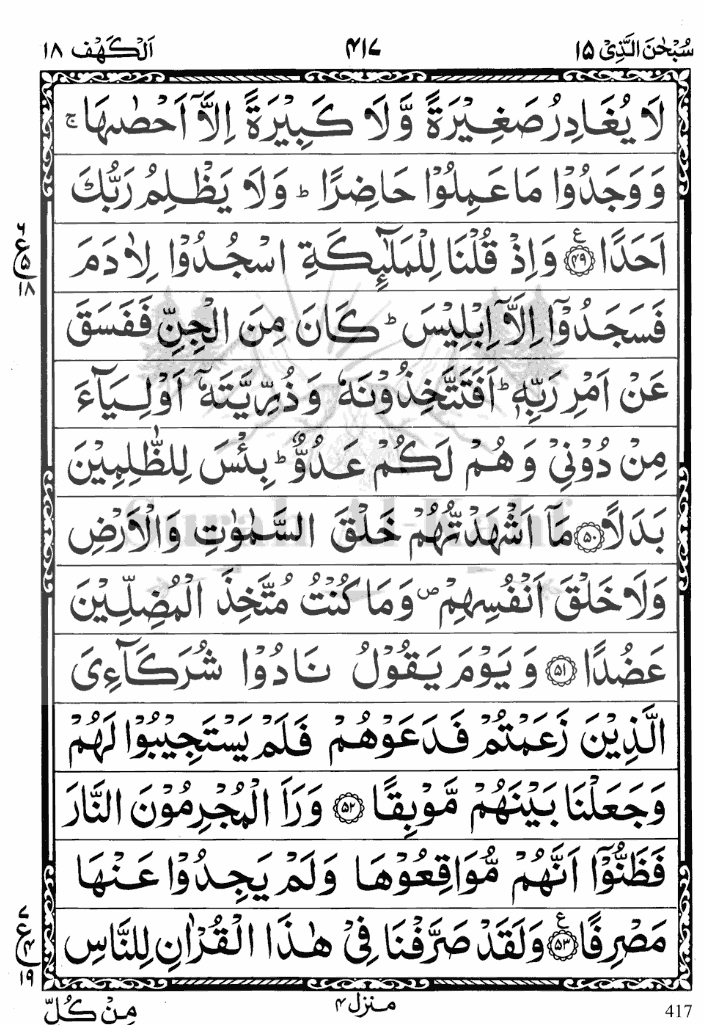 سُبْحٰنَ الَّذِیْ ۱۵ ۴۱۷ اَلْكَهْف ۱۸
لَا یُغَادِرُ صَغِیْرَةً وَّلَا كَبِیْرَةً اِلَّاۤ اَحْصٰىهَا ۚ
وَ وَجَدُوْا مَا عَمِلُوْا حَاضِرًا ؕ وَلَا یَظْلِمُ رَبُّكَ
اَحَدًا ۴۹ ع وَاِذْ قُلْنَا لِلْمَلٰٓىِٕكَةِ اسْجُدُوْا لِاٰدَمَ
۶ ع ۵ ۱۸
فَسَجَدُوْۤا اِلَّاۤ اِبْلِیْسَ ؕ كَانَ مِنَ الْجِنِّ فَفَسَقَ
عَنْ اَمْرِ رَبِّهٖ ؕ اَفَتَتَّخِذُوْنَهٗ وَ ذُرِّیَّتَهٗۤ اَوْلِیَآءَ
مِنْ دُوْنِیْ وَ هُمْ لَكُمْ عَدُوٌّ ؕ بِئْسَ لِلظّٰلِمِیْنَ
بَدَلًا ۵۰ مَاۤ اَشْهَدْتُّهُمْ خَلْقَ السَّمٰوٰتِ وَالْاَرْضِ
Surah Al-Kahf
وَلَا خَلْقَ اَنْفُسِهِمْ ۪ وَمَا كُنْتُ مُتَّخِذَ الْمُضِلِّیْنَ
عَضُدًا ۵۱ وَ یَوْمَ یَقُوْلُ نَادُوْا شُرَكَآءِیَ
الَّذِیْنَ زَعَمْتُمْ فَدَعَوْهُمْ فَلَمْ یَسْتَجِیْبُوْا لَهُمْ
وَجَعَلْنَا بَیْنَهُمْ مَّوْبِقًا ۵۲ وَرَاَ الْمُجْرِمُوْنَ النَّارَ
فَظَنُّوْۤا اَنَّهُمْ مُّوَاقِعُوْهَا وَلَمْ یَجِدُوْا عَنْهَا
مَصْرِفًا ۵۳ ع وَلَقَدْ صَرَّفْنَا فِیْ هٰذَا الْقُرْاٰنِ لِلنَّاسِ
۷ ع ۴ ۱۹
417 منزل ۴ مِنْ كُلِّ